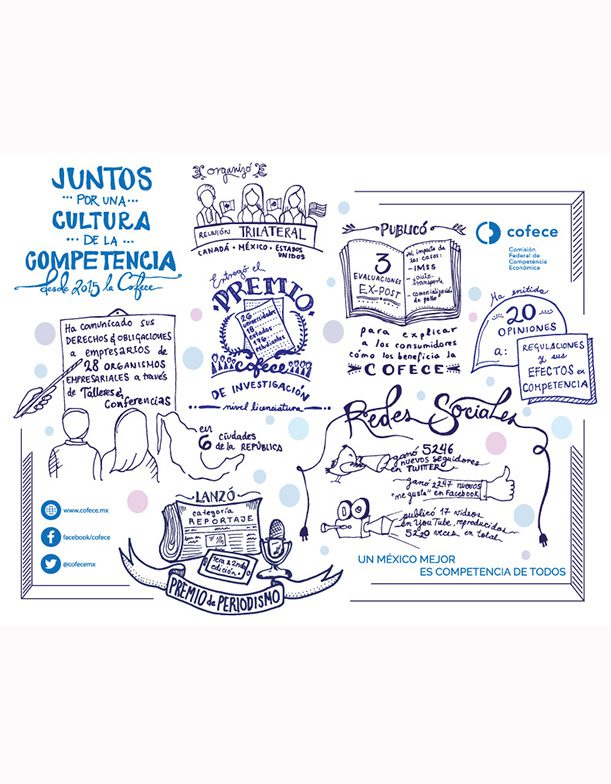 JUNTOS
POR UNA
CULTURA
DE LA
COMPETENCIA
desde 2015 la Cofece
Ha comunicado sus
DERECHOS & OBLIGACIONES
a empresarios de
28 ORGANISMOS
EMPRESARIALES a través
de Talleres &
Conferencias
en
6 ciudades
de la REPÚBLICA
organizó
REUNIÓN TRILATERAL
CANADÁ • MÉXICO • ESTADOS
UNIDOS
Entregó el
PREMIO
26
universidades
cofece
DE INVESTIGACIÓN
nivel licenciatura
PUBLICÓ
3
EVALUACIONES
EX-POST
del impacto de
los casos:
- IMSS
- auto
transporte
- comercialización
de pollo
para explicar
a los consumidores
cómo los beneficia la
COFECE
cofece
Comisión
Federal de
Competencia
Económica
Ha emitido
20
OPINIONES
a:
REGULACIONES
y sus
EFECTOS en
COMPETENCIA
Redes Sociales
ganó 5246
nuevos seguidores
en TWITTER
ganó 2247 nuevos
"me gusta" en Facebook
publicó 17 videos
en YouTube, reproducidos
5220 veces en total
LANZÓ
categoría
REPORTAJE
1era & 2nda
edición
PREMIO de PERIODISMO
www.cofece.mx
facebook/cofece
@cofecemx
UN MÉXICO MEJOR
ES COMPETENCIA DE TODOS